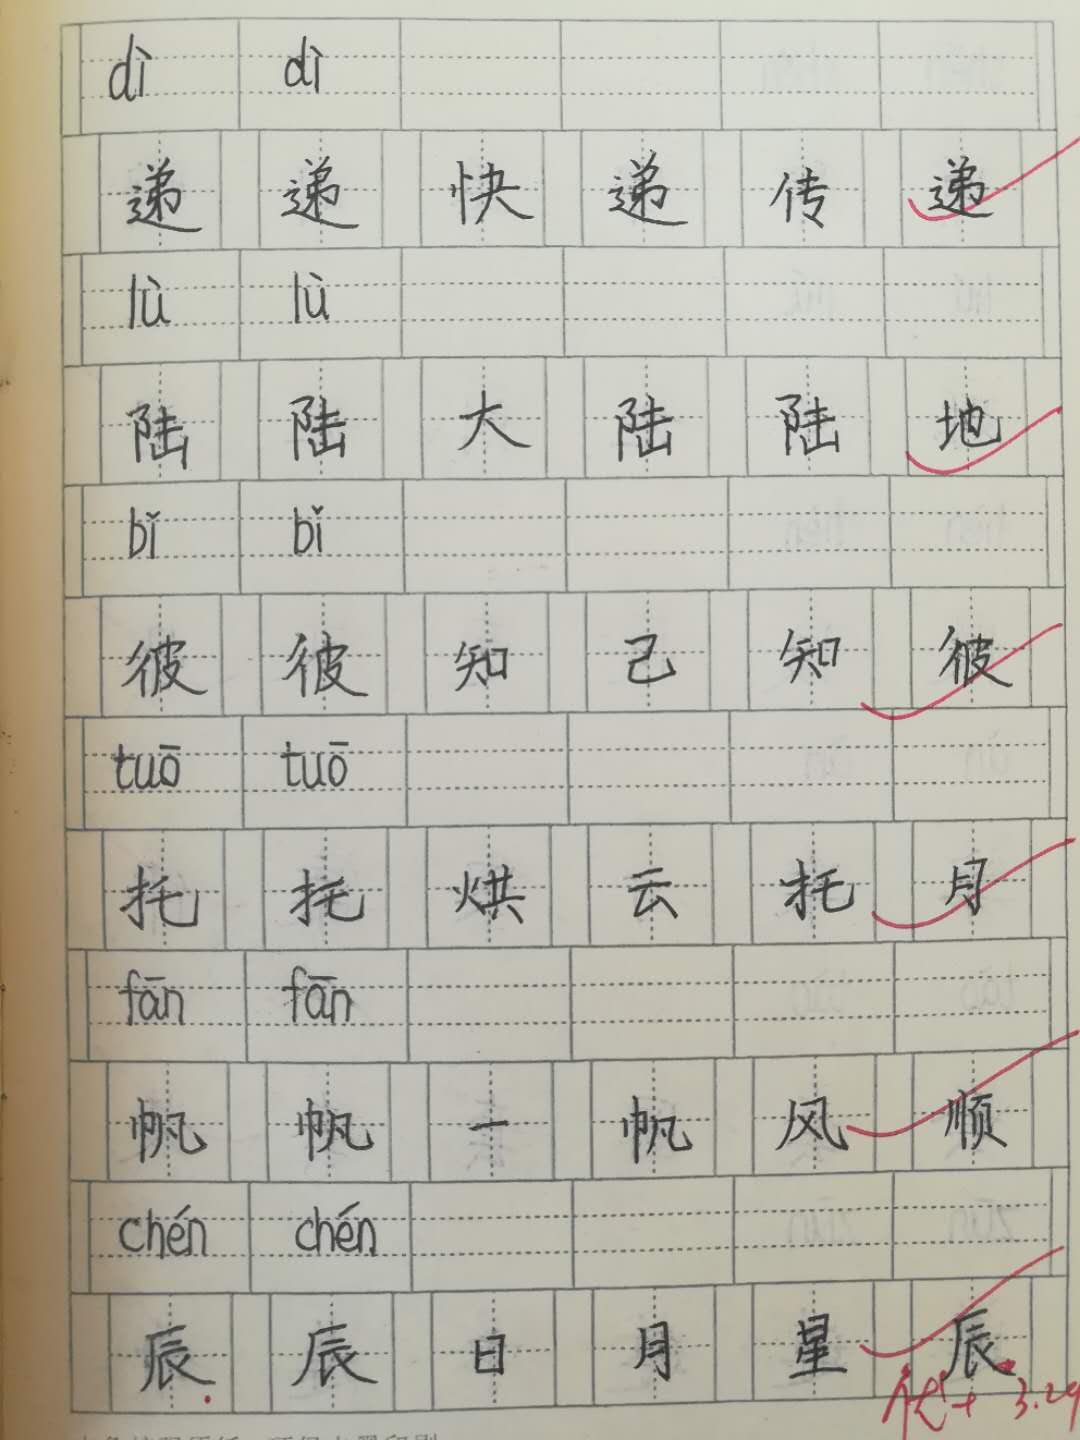 dì dì
递 递 快 递 传 递
lù lù
陆 陆 大 陆 陆 地
bǐ bǐ
彼 彼 知 己 知 彼
tuō tuō
托 托 烘 云 托 月
fān fān
帆 帆 一 帆 风 顺
chén chén
辰 辰 日 月 星 辰
优+ 3.29